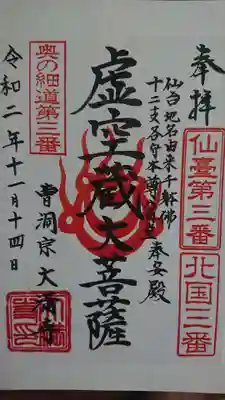 奉拝
仙臺第三番
北国三番
仙台地名由来千躰佛
十二支各守本尊 奉安殿
虚空蔵大菩薩
曹洞宗 大満寺
奥の細道第三番
令和二年十一月十四日